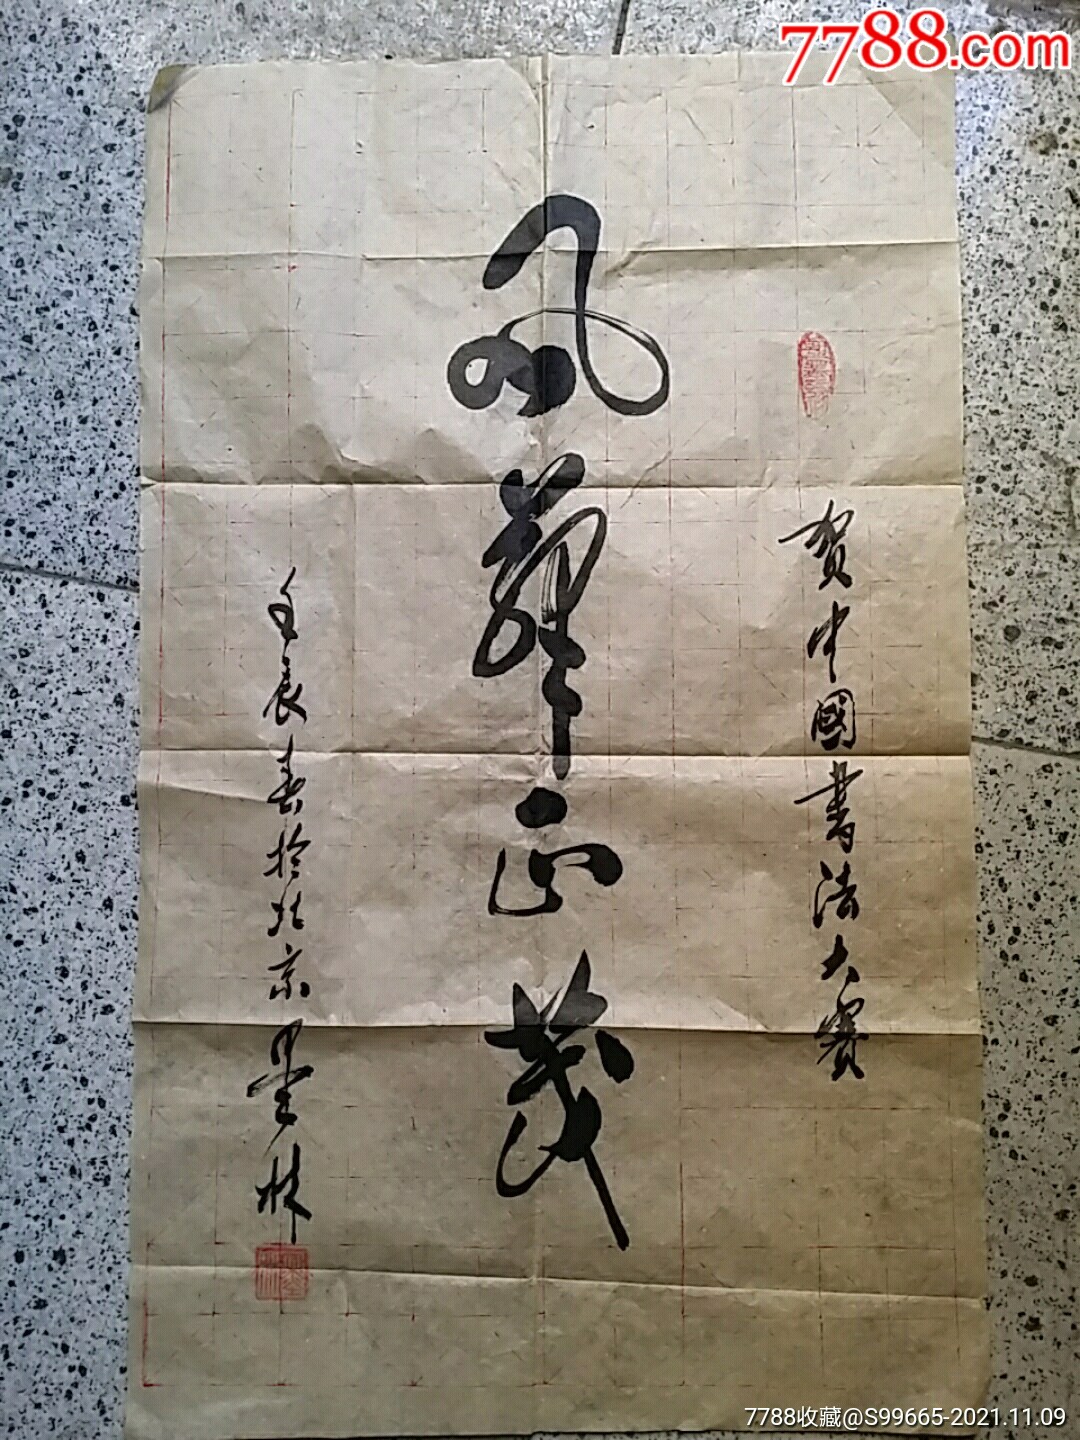 7788.com
贺中國書法大赛
风华正茂
壬辰春於北京墨林
7788收藏@S99665-2021.11.09